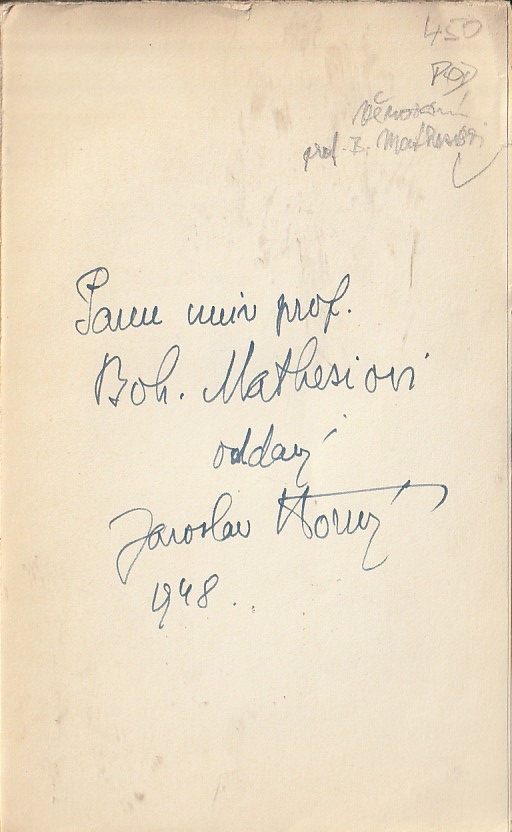 450
POD
věnování
prof. B. Mathesiovi
Panu univ prof.
Boh. Mathesiovi
oddaný
Jaroslav Horný
1948.